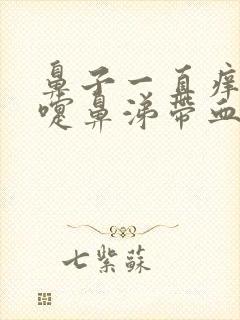 鼻子一直痒
嚏鼻涕带血
七紫蘇